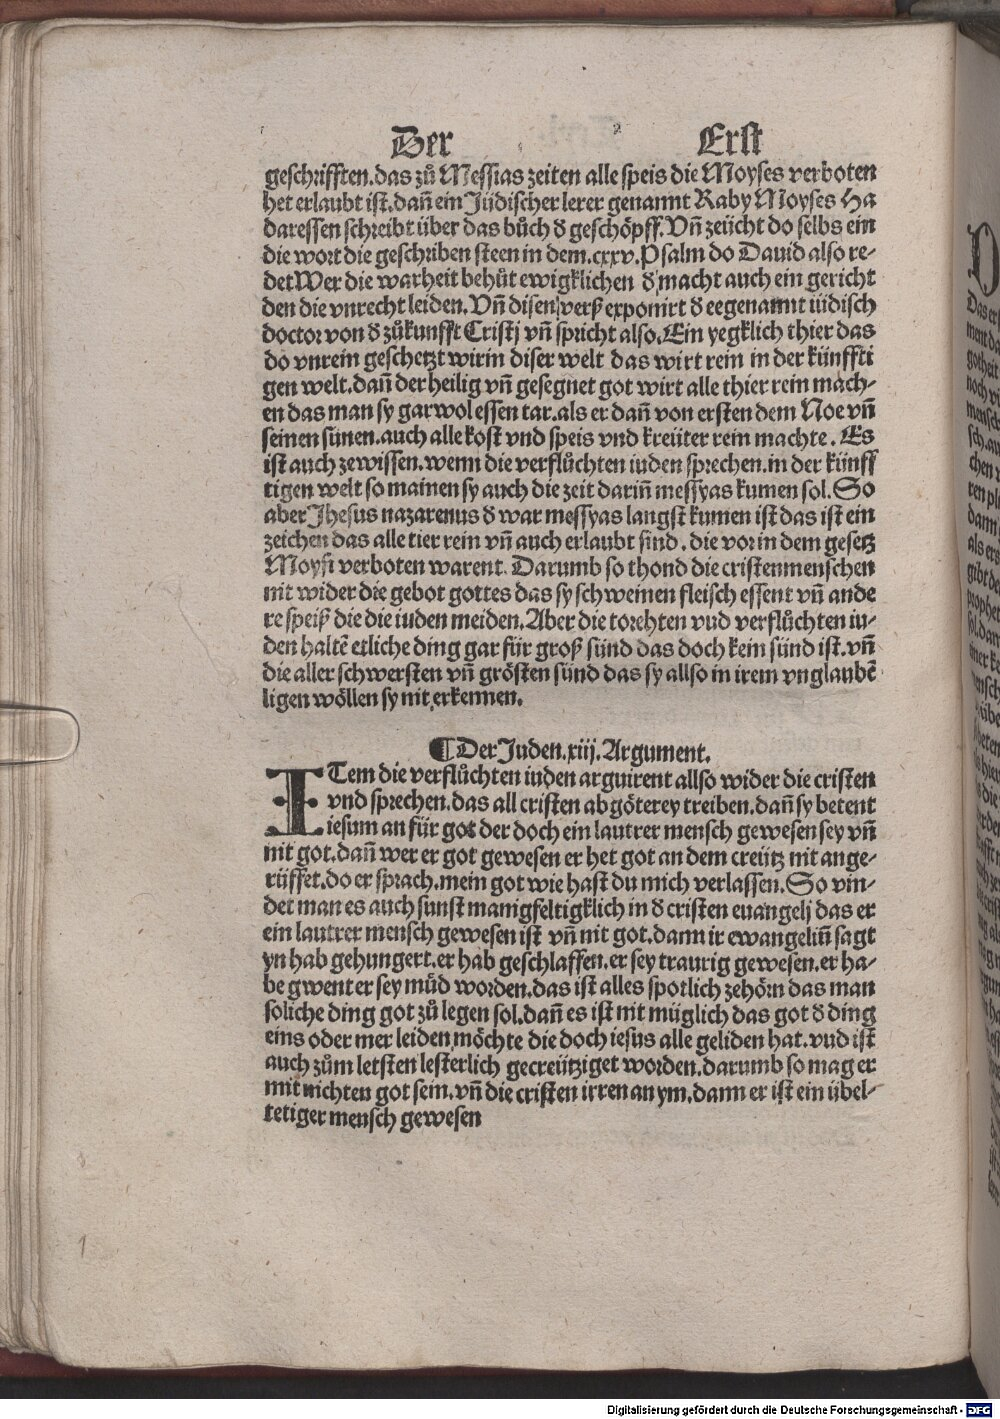 Der Erst
geschrifften.das zů Messias zeiten alle speis die Moyses verboten
het erlaubt ist.dañ ein Jüdischer lerer genannt Raby Moyses Ha
daressen schreibt über das bůch d̕ geschöpff.Vñ zeücht do selbs ein
die wort die geschriben steen in dem.cxxv.Psalm do Dauid also re-
det Wer die warheit behůt ewigklichen d̕ macht auch ein gericht
den die vnrecht leiden.Vñ disen verß exponirt d̕ eegenannt iüdisch
doctor von d̕ zůkunfft Cristj vñ spricht also.Ein yegklich thier das
do vnrein geschetzt wirt in diser welt das wirt rein in der künffti
gen welt.dañ der heilig vñ gesegnet got wirt alle thier rein mach-
en das man sy gar wol essen tar.als er dañ von ersten dem Noe vñ
seinen sünen.auch alle kost vnd speis vnd kreüter rein machte. Es
ist auch ze wissen.wenn die verflůchten iuden sprechen.in der künff
tigen welt so mainen sy auch die zeit dariñ messyas kumen sol.So
aber Jhesus nazarenus d̕ war messyas langst kumen ist das ist ein
zeichen das alle tier rein vñ auch erlaubt sind.die vor in dem gesetz
Moysi verboten warent.Darumb so thond die cristenmenschen
nit wider die gebot gottes das sy schweinen fleisch essent vñ ande
re speiß die die iuden meiden.Aber die torehten vnd verflůchten iu-
den haltẽ etliche ding gar für groß sünd das doch kein sünd ist.vñ
die aller schwersten vñ grösten sünd das sy allso in irem vnglaubẽ
ligen wöllen sy nit erkennen.
¶Der Juden.xiij.Argument.
ITem die verflůchten iuden arguirent allso wider die cristen
vnd sprechen.das all cristen abgöterey treiben.dañ sy betent
iesum an für got der doch ein lautrer mensch gewesen sey vñ
nit got.dañ wer er got gewesen er het got an dem creütz nit ange-
rüffet.do er sprach.mein got wie hast du mich verlassen.So vin-
det man es auch sunst manigfeltigklich in d̕ cristen euangelj das er
ein lautrer mensch gewesen ist vñ nit got.dann ir ewangeliũ sagt
yn hab gehungert.er hab geschlaffen.er sey traurig gewesen.er ha-
be gwent er sey müd worden.das ist alles spotlich zehörn das man
soliche ding got zů legen sol.dañ es ist nit müglich das got d̕ ding
eins oder mer leiden möchte die doch iesus alle geliden hat.vnd ist
auch zům letsten lesterlich gecreütziget worden.darumb so mag er
mit nichten got sein.vñ die cristen irren an ym.dann er ist ein übel-
tetiger mensch gewesen
1
Digitalisierung gefördert durch die Deutsche Forschungsgemeinschaft - DFG